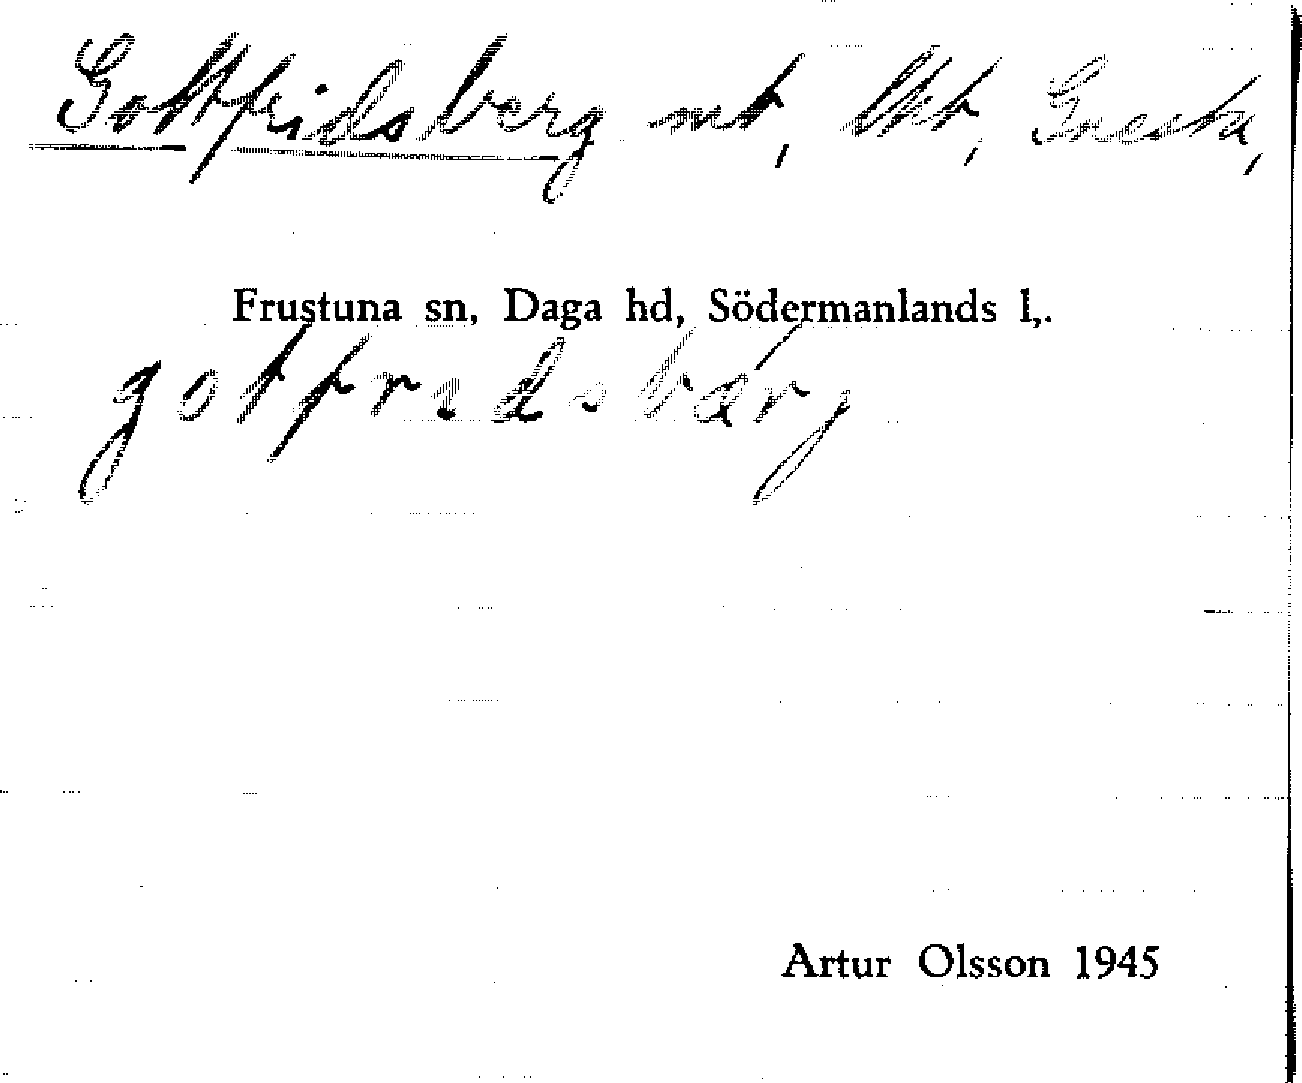 Gottfridsberg mt, lht, Gnesta,
Frustuna sn, Daga hd, Södermanlands l,.
gotfridsbærj
Artur Olsson 1945